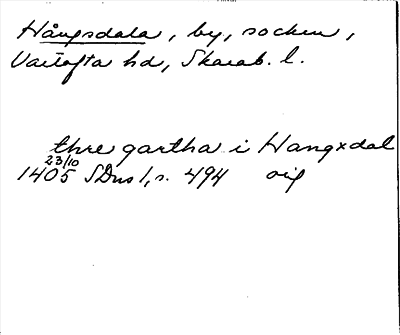 Hångsdala, by, socken,
Vartofta hd, Skarab. l.
thre gartha i Hangxdal
23/10
1405 SDns 1, s. 494 orig